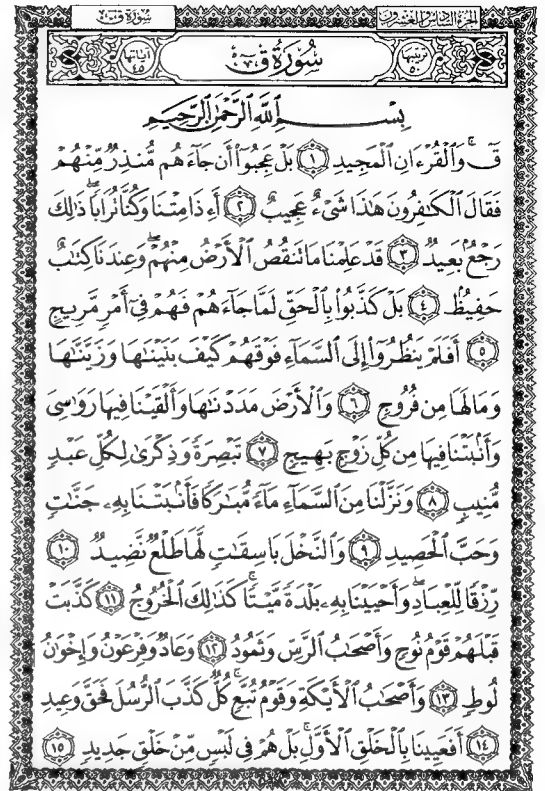 الجزء السادس والعشرون
سورة ق ٥٠
ترتيبها ٥٠
سورة ق
آياتها ٤٥
بِسْمِ ٱللَّهِ ٱلرَّحْمَٰنِ ٱلرَّحِيمِ
قٓ ۚ وَٱلْقُرْءَانِ ٱلْمَجِيدِ ١ بَلْ عَجِبُوٓا۟ أَن جَآءَهُم مُّنذِرٌ مِّنْهُمْ
فَقَالَ ٱلْكَٰفِرُونَ هَٰذَا شَىْءٌ عَجِيبٌ ٢ أَءِذَا مِتْنَا وَكُنَّا تُرَابًا ۖ ذَٰلِكَ
رَجْعٌۢ بَعِيدٌ ٣ قَدْ عَلِمْنَا مَا تَنقُصُ ٱلْأَرْضُ مِنْهُمْ ۖ وَعِندَنَا كِتَٰبٌ
حَفِيظٌۢ ٤ بَلْ كَذَّبُوا۟ بِٱلْحَقِّ لَمَّا جَآءَهُمْ فَهُمْ فِىٓ أَمْرٍ مَّرِيجٍ
٥ أَفَلَمْ يَنظُرُوٓا۟ إِلَى ٱلسَّمَآءِ فَوْقَهُمْ كَيْفَ بَنَيْنَٰهَا وَزَيَّنَّٰهَا
وَمَا لَهَا مِن فُرُوجٍ ٦ وَٱلْأَرْضَ مَدَدْنَٰهَا وَأَلْقَيْنَا فِيهَا رَوَٰسِىَ
وَأَنۢبَتْنَا فِيهَا مِن كُلِّ زَوْجٍۭ بَهِيجٍ ٧ تَبْصِرَةً وَذِكْرَىٰ لِكُلِّ عَبْدٍ
مُّنِيبٍ ٨ وَنَزَّلْنَا مِنَ ٱلسَّمَآءِ مَآءً مُّبَٰرَكًا فَأَنۢبَتْنَا بِهِۦ جَنَّٰتٍ
وَحَبَّ ٱلْحَصِيدِ ٩ وَٱلنَّخْلَ بَاسِقَٰتٍ لَّهَا طَلْعٌ نَّضِيدٌ ١٠
رِّزْقًا لِّلْعِبَادِ ۖ وَأَحْيَيْنَا بِهِۦ بَلْدَةً مَّيْتًا ۚ كَذَٰلِكَ ٱلْخُرُوجُ ١١ كَذَّبَتْ
قَبْلَهُمْ قَوْمُ نُوحٍ وَأَصْحَٰبُ ٱلرَّسِّ وَثَمُودُ ١٢ وَعَادٌ وَفِرْعَوْنُ وَإِخْوَٰنُ
لُوطٍ ١٣ وَأَصْحَٰبُ ٱلْأَيْكَةِ وَقَوْمُ تُبَّعٍ ۚ كُلٌّ كَذَّبَ ٱلرُّسُلَ فَحَقَّ وَعِيدِ
١٤ أَفَعَيِينَا بِٱلْخَلْقِ ٱلْأَوَّلِ ۚ بَلْ هُمْ فِى لَبْسٍ مِّنْ خَلْقٍ جَدِيدٍ ١٥